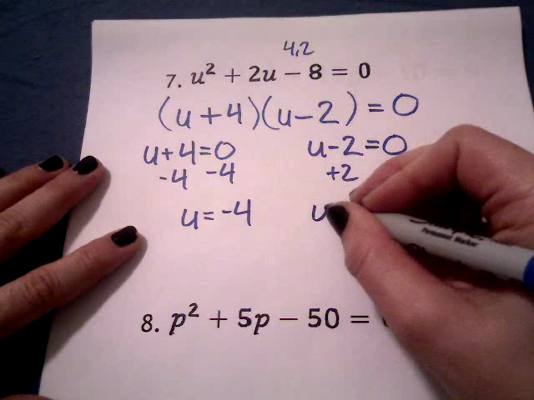 4,2
7. u² + 2u − 8 = 0
(u+4)(u−2) = 0
u+4=0 u−2=0
-4 -4 +2
u=-4 u
8. p² + 5p − 50 =
Permanent Marker